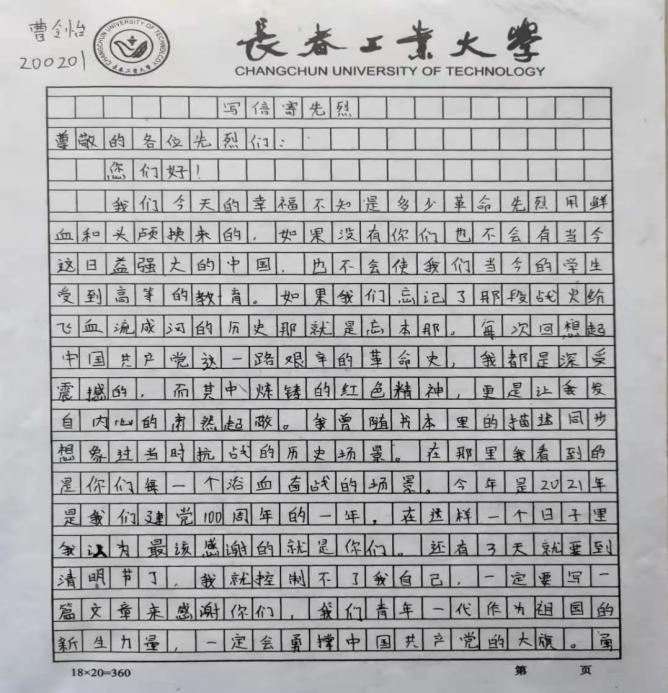 曹金怡
200201
CHANGCHUN UNIVERSITY OF TECHNOLOGY
长春工业大学
長春工业大學
CHANGCHUN UNIVERSITY OF TECHNOLOGY
写信寄先烈
尊敬的各位先烈们：
您们好！
我们今天的幸福不知是多少革命先烈用鲜
血和头颅换来的，如果没有你们也不会有当今
这日益强大的中国，也不会使我们当今的学生
受到高等的教育。如果我们忘记了那段战火纷
飞血流成河的历史那就是忘本那，每次回想起
中国共产党这一路艰辛的革命史，我都是深受
震撼的，而其中炼铸的红色精神，更是让我发
自内心的肃然起敬。我曾随书本里的描述同步
想象过当时抗战的历史场景。在那里我看到的
是你们每一个浴血奋战的场景，今年是2021年
是我们建党100周年的一年，在这样一个日子里
我认为最该感谢的就是你们。还有3天就要到
清明节了，我就控制不了我自己，一定要写一
篇文章来感谢你们，我们青年一代作为祖国的
新生力量，一定会勇撑中国共产党的大旗。虽
18×20=360
第 页